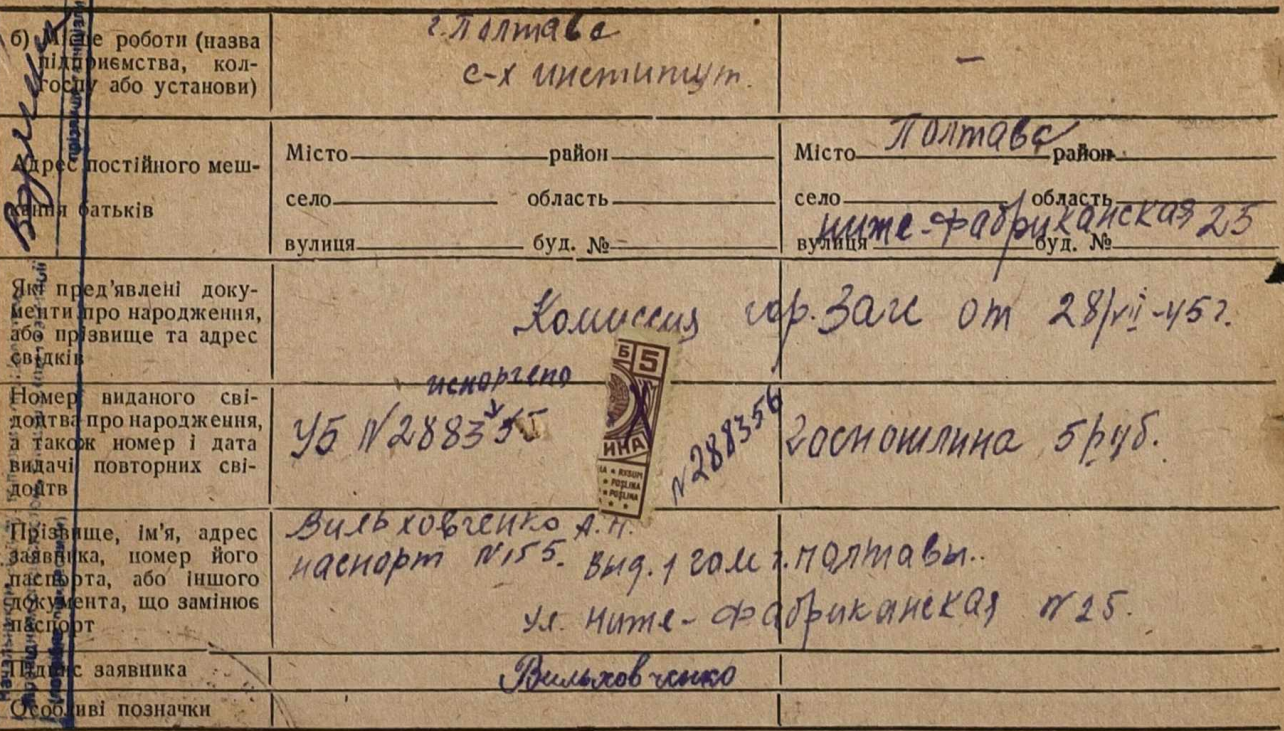 б) Місце роботи (назва
підприємства, кол-
госпу або установи)
г. Полтава
с-х институт.
—
Адрес постійного меш-
кання батьків
Місто район
село область
вулиця буд. №
Місто Полтава район
село область
вулиця ниже-Фабриканская 25 буд. №
Які пред’явлені доку-
менти про народження,
або прізвище та адрес
свідків
Комиссия гор. Загс от 28/VII-45г.
Номер виданого сві-
доцтва про народження,
а також номер і дата
видачі повторних сві-
доцтв
испорчено
УБ N 288355
Б 5
ИНА
RXSUM
POŞLINA
POŞLINA
N 288356
Госпошлина 5 руб.
Прізвище, ім’я, адрес
заявника, номер його
паспорта, або іншого
документа, що замінює
паспорт
Вильховченко А.Н.
паспорт N 155. выд. 1 гом г. Полтавы.
ул. Ниже-Фабриканская N 25.
Підпис заявника
Вильховченко
Особливі позначки